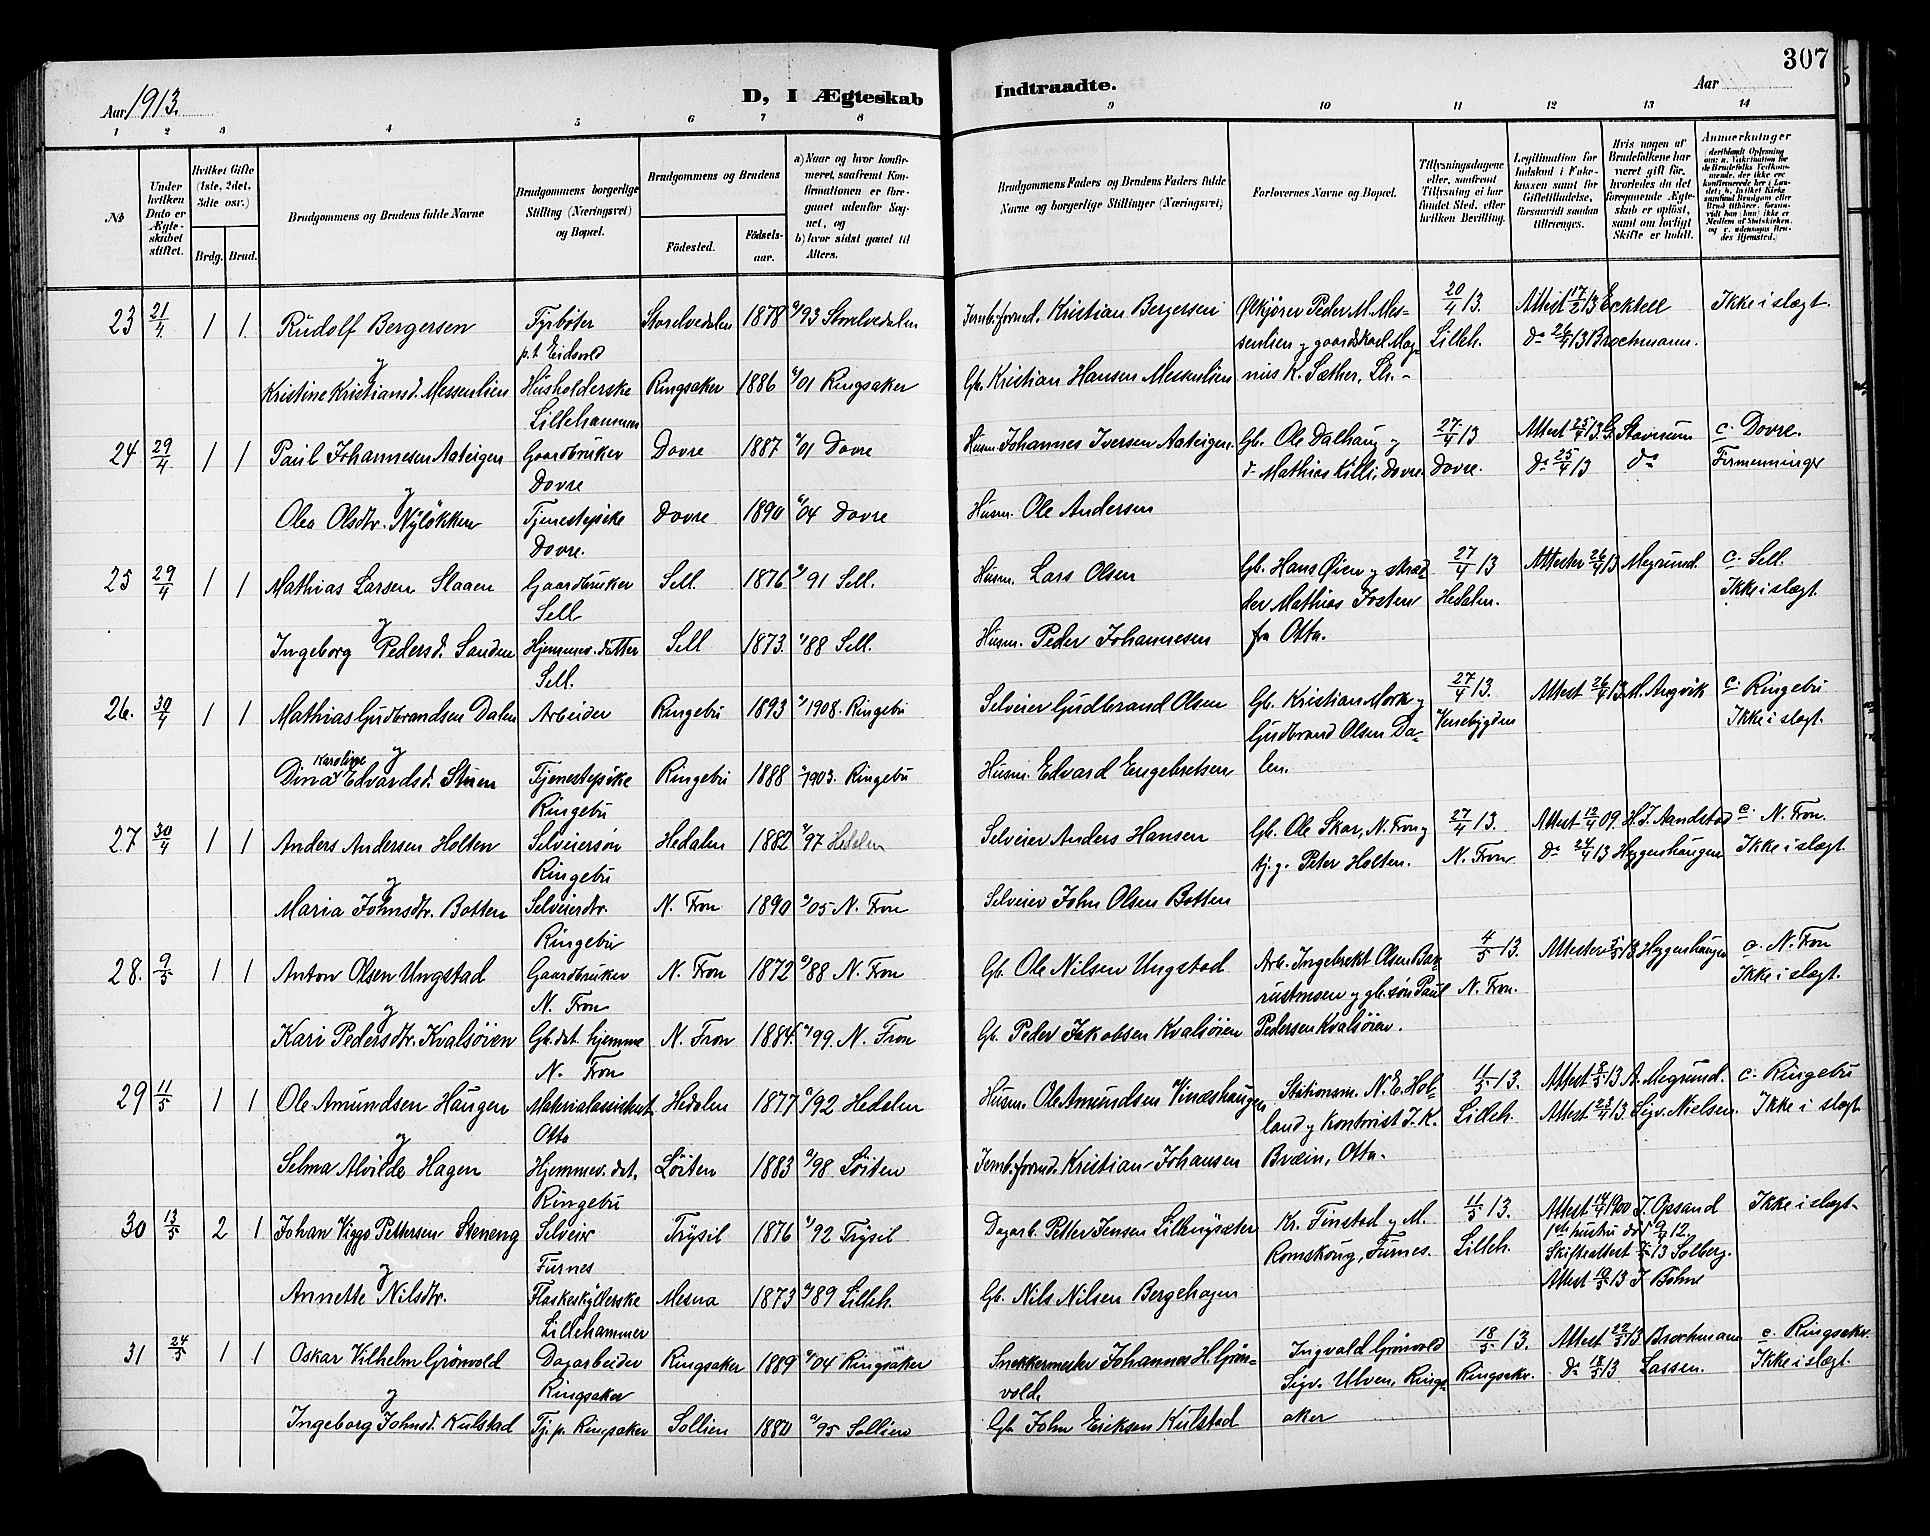 307
Aar 1913.
D, I Ægteskab Indtraadte.
Aar
1 2 3 4 5 6 7 8 9 10 11 12 13 14
№
Under hvilken Dato er Ægteskabet stiftet.
Hvilket Gifte (1ste, 2det, 3die osv.)
Brdg. Brud.
Brudgommens og Brudens fulde Navne
Brudgommens borgerlige Stilling (Næringsvei) og Bopæl.
Brudgommens og Brudens
Födested.
Födselsaar.
a) Naar og hvor konfirmeret, saafremt Konfirmationen er foregaaet udenfor Sognet, og
b) hvor sidst gaaet til Alters.
Brudgommens Faders og Brudens Faders fulde Navne og borgerlige Stillinger (Næringsvei)
Forlovernes Navne og Bopæl.
Tillysningsdagene eller, saafremt Tillysning ei har fundet Sted, efter hvilken Bevilling.
Legitimation for Indskud i Enkekassen samt for Giftetilladelse, forsaavidt saadan tiltrænges.
Hvis nogen af Brudefolkene har været gift för, hvorledes da det foregaaende Ægteskab er oplöst, samt om lovligt Skifte er holdt.
Anmerkninger
23 21/4 1 1 Rudolf Bergersen Fyrbøter Storelvedalen 1878 93 Storelvedalen Jernb.formd. Kristian Bergersen Ølkjører Peder M. Mes- 20/4 13. Attest 17/2 13 Ecktell Ikke i slægt.
og p.t. Eidsvold senlien og gaardskarl Mag- Lilleh. do 26/4 13 Brochmann.
Kristine Kristiansd. Messenlien Husholderske Ringsaker 1886 01 Ringsaker Gb. Kristian Hansen Messenlien nus K. Sæther, Lh.
Lillehammer
24 29/4 1 1 Paul Johannesen Aateigen Gaardbruker Dovre 1887 01 Dovre Husm. Johannes Iversen Aateigen. Gb. Ole Dalhaug og 27/4 13 Attest 25/4 13 G. Stavrum c. Dovre.
og Dovre do Mathias Killi, Dovre Dovre. do 25/4 13 do Firmenninger
Olea Olsdtr. Nyløkken Tjenestepike Dovre 1890 04 Dovre Husm. Ole Andersen
Dovre.
25 29/4 1 1 Mathias Larsen Slaaen Gaardbruker Sell. 1876 91 Sell. Husm. Lars Olsen Gb. Hans Øien og skræd- 27/4 13 Attester 26/4 13 Megrund. c. Sell.
og Sell der Mathias Josten Hedalen. Ikke i slægt.
Ingeborg Pedersd. Sanden Hjemmev. datter Sell 1873. 88 Sell. Husm. Peder Johannesen fra Otta.
Sell.
26. 30/4 1 1 Mathias Gudbrandsen Dalen Arbeider Ringebu 1893 1908. Ringebu Selveier Gudbrand Olsen Gb. Kristian Mork og 27/4 13. Attest 26/4 13 M. Angvik c. Ringebu
og Gudbrand Olsen Da- Venebygden Ikke i slægt.
Dina Karoline Edvardsd. Stuen Tjenestepike Ringebu 1888 1903. Ringebu Husm. Edvard Engebretsen len.
Ringebu
27 30/4 1 1 Anders Andersen Holten Selveiersøn Hedalen 1882 97 Hedalen Selveier Anders Hansen Gb. Ole Skar, N. Fron og 27/4 13. Attest 12/4 09. H. J. Aandstad c. N. Fron.
og Ringebu tj.g. Peter Holten. N. Fron do 24/4 13 Heggenhaugen Ikke i slægt.
Maria Johnsdtr. Botten Selveierdtr. N. Fron 1890 05 N. Fron Selveier John Olsen Botten
Ringebu
28. 9/5 1 1 Anton Olsen Ungstad Gaardbruker N. Fron 1872 88 N. Fron Gb. Ole Nilsen Ungstad Arb. Ingebrekt Olsen Ba- 4/5 13. Attester 5/5 13 Heggenhaugen c. N. Fron
og N. Fron rustmoen og gb.søn Paul N. Fron. Ikke i slægt.
Kari Pedersdtr. Kvalsøien Gb.dat. hjemme N. Fron 1884. 99. N. Fron Gb. Peder Jakobsen Kvalsøien Pedersen Kvalsøien.
N. Fron
29 11/5 1 1 Ole Amundsen Haugen Materialassistent Hedalen 1877 92 Hedalen Husm. Ole Amundsen Vindshaugen Stationsm. N. E. Hol- 4/5 13. Attest 8/5 13 A. Megrund. c. Ringebu
og Otta land og kontorist J. K. Lilleh. Attest 25/4 13. Sigv. Nielsen. Ikke i slægt
Selma Alvilde Hagen Hjemmev. dat. Løiten 1883 98. Løiten Jernb.formd. Kristian Johansen Bræin, Otta.
Ringebu
30 13/5 2 1 Johan Viggo Pettersen Steneng Selveier Trysil 1876 92 Trysil Dagarb. Petter Jensen Lillenysæter Kr. Finstad og M. 4/5 13. Attest 14/4 1900 J. Opsand Ikke i slægt.
og Furnes Romskoug, Furnes. Lilleh. 1ste hustru død 9/9 12.
Skifteattest 7/5 13 Solberg.
Annette Nilsdtr. Flaskeskyllerske Mesna 1873 89 Lilleh. Gb. Nils Nilsen Bergehagen Attest 10/5 13 J. Bøhne
Lillehammer
31 24/5 1 1 Oskar Vilhelm Grönvold Dagarbeider Ringsaker 1889 04 Ringsaker Snekkermester Johannes H. Grön- Ingvald Grönvold 18/5 13. Attest 22/5 13 Brochmann c. Ringsaker.
og Ringsaker vold. Sigv. Ulven, Rings- Ringsaker. do 18/5 13 Lassen. Ikke i slægt.
Ingeborg Johnsd. Kulstad Tj.p. Ringsaker Sollien 1880 95 Sollien Gb. John Eriksen Kulstad aker